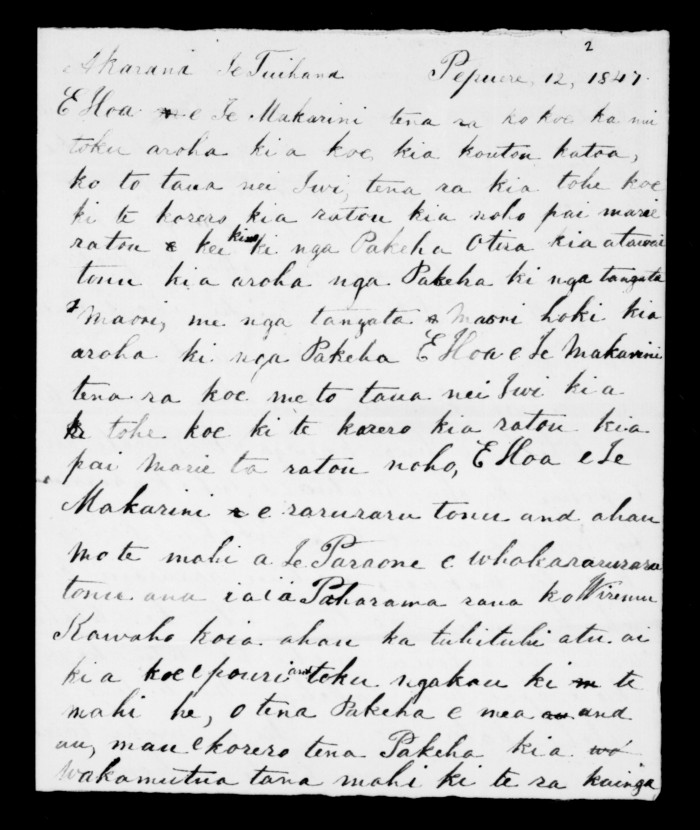 2
Akarana Te Tuihana Pepuere, 12, 1847.
E Hoa e Te Makarini tena ra ko koe ka nui
toku aroha ki a koe, kia koutou katoa,
ko to taua nei Iwi, tena ra kia tohe koe
ki te korero kia ratou kia noho pai marie
ratou kei kino ki nga Pakeha Otira kia atawai
tonu kia aroha nga Pakeha ki nga tangata
Maori, me nga tangata Maori hoki kia
aroha ki nga Pakeha E Hoa e Te Makarini
tena ra koe me to taua nei Iwi kia
tohe koe ki te korero kia ratou kia
pai marie ta ratou noho, E Hoa e Te
Makarini e raruraru tonu and ahau
mo te mahi a Te Paraone e whakararuraru
tonu ana iaia Paharama raua ko Wiremu
Kawaho koia ahau ka tuhituhi atu ai
kia koe e pouri and toku ngakau ki te
mahi he, o tena Pakeha e mea and
au, mau e korero tena Pakeha kia
wakamutua tana mahi ki te ra kainga,